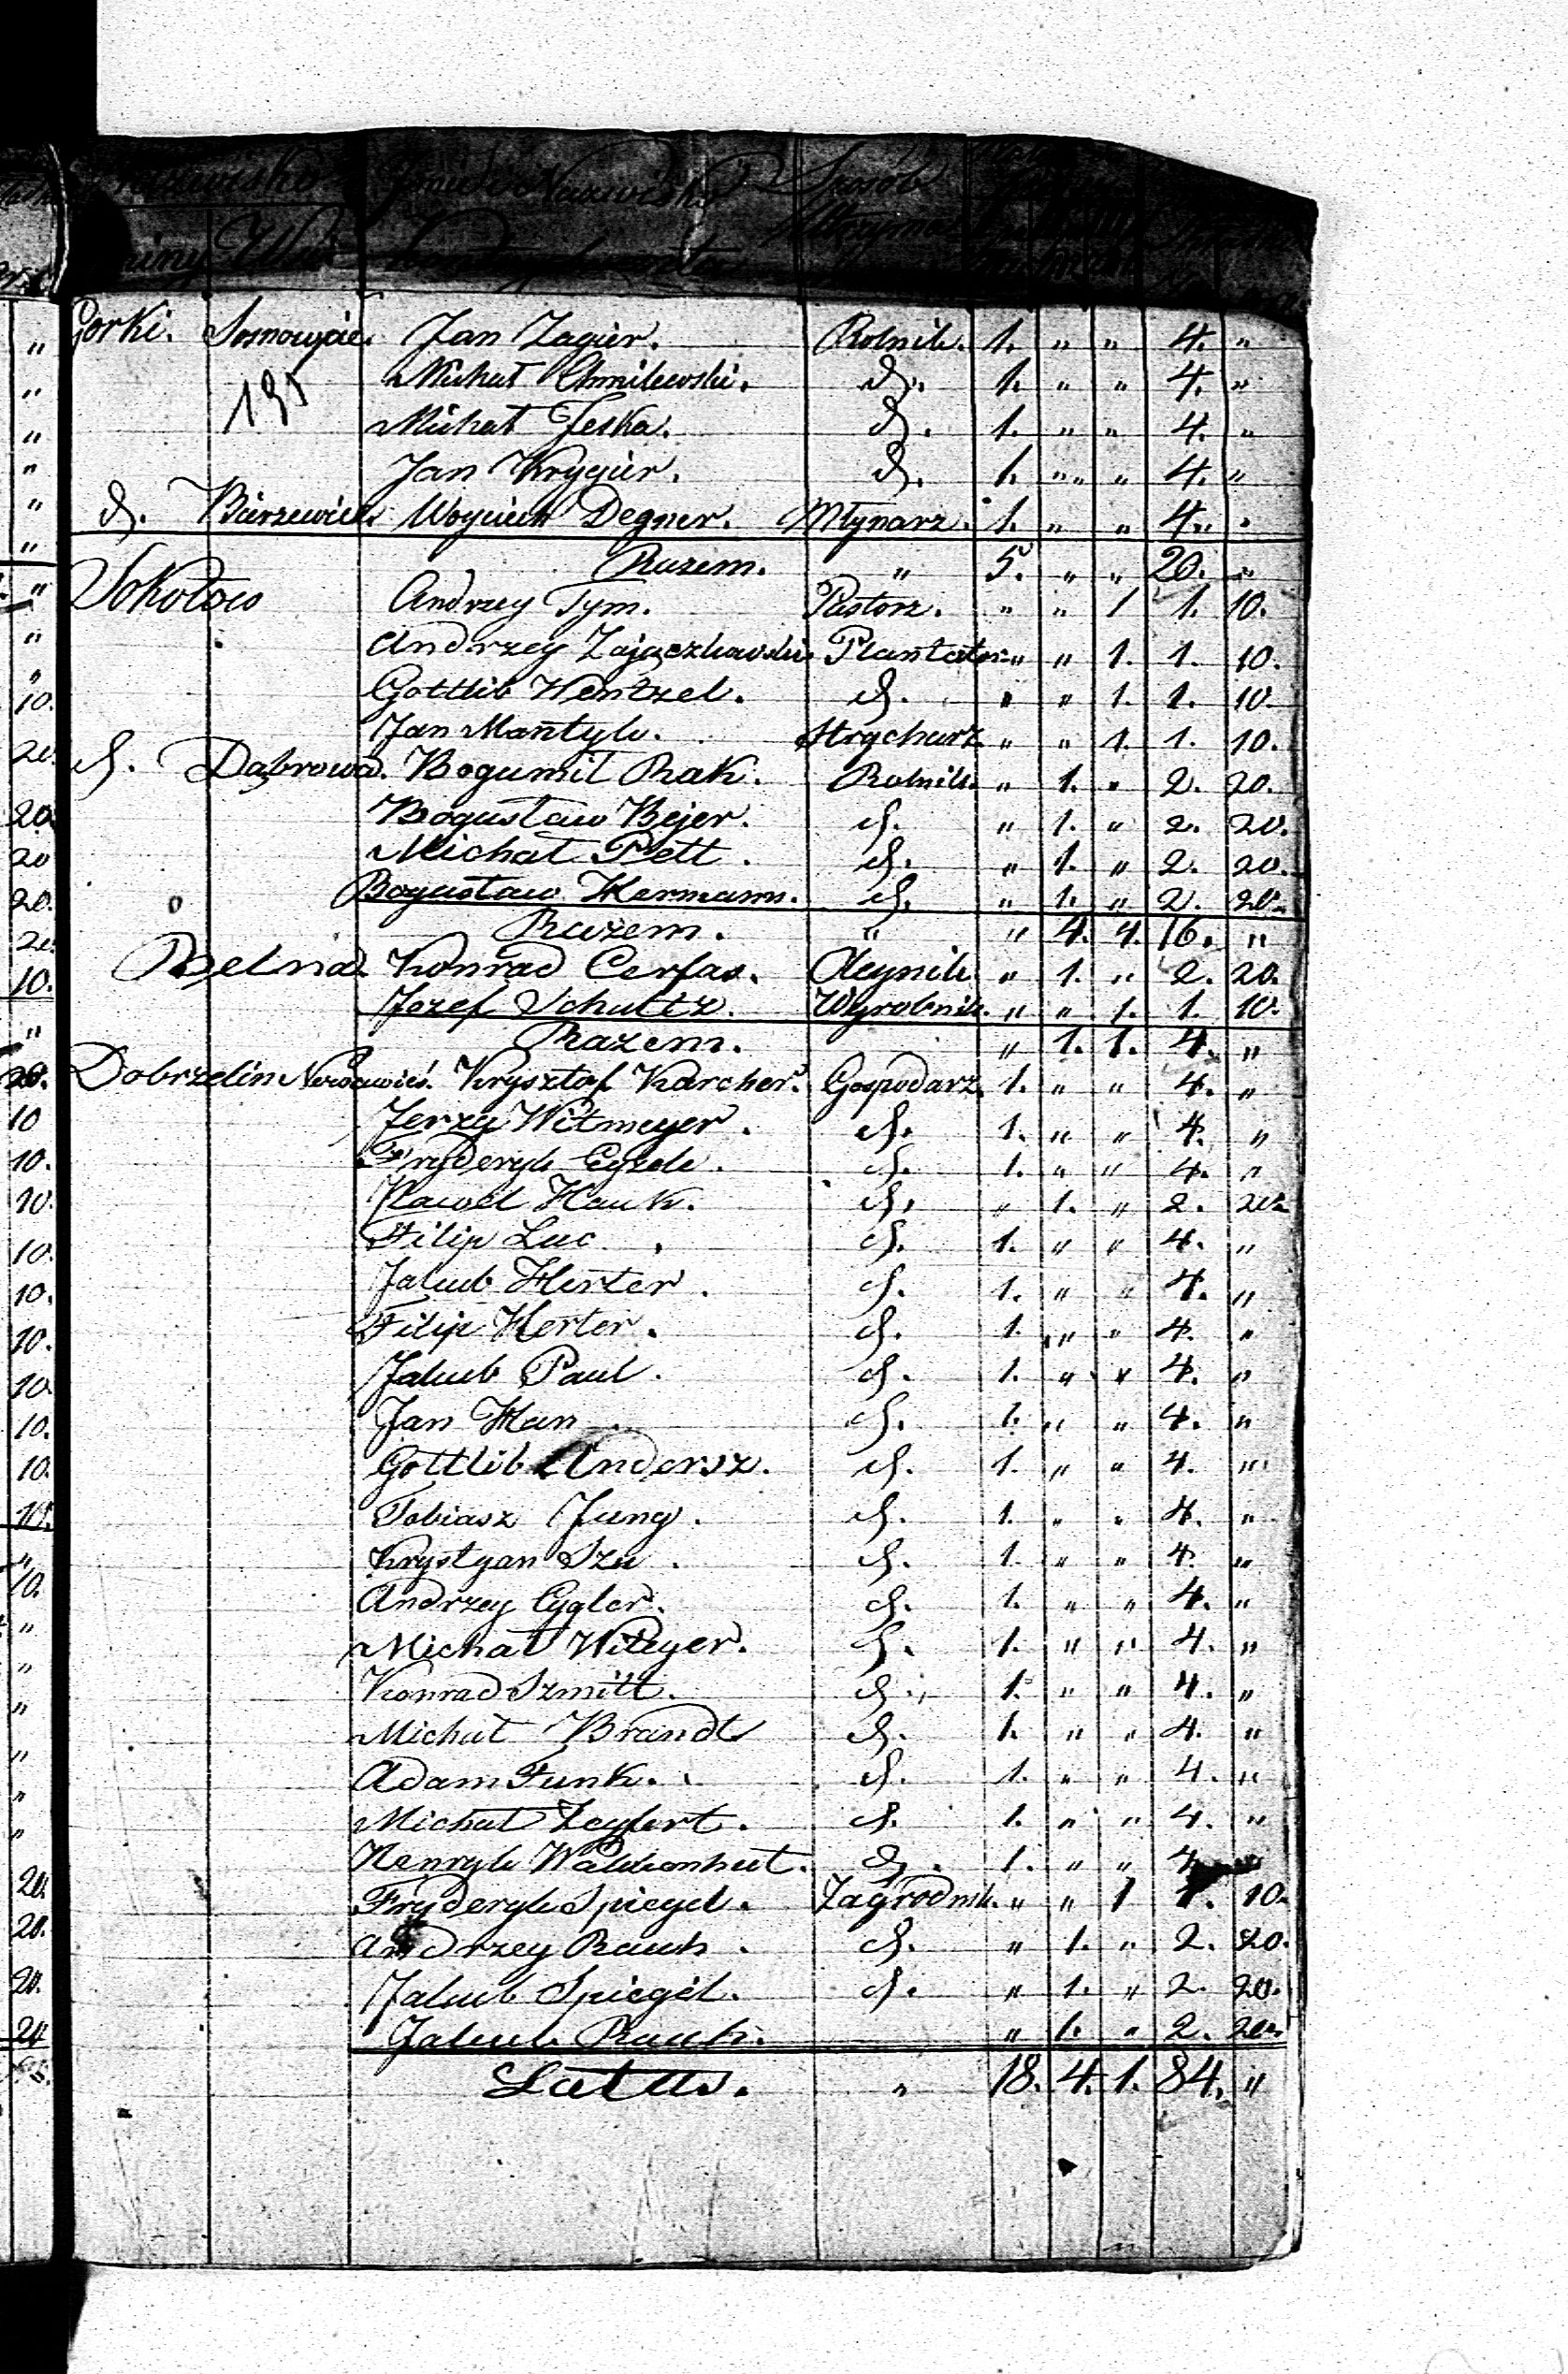 Gminy Wsi
Gorki. Jan Zagier. Rolnik. 1. " " 4. "
135 Michał Chmilewski. d. 1. " " 4. "
Michał Jeska. d. 1. " " 4. "
Jan Krygier. d. 1. " " 4. "
d. Woyciech Degner. Młynarz. 1. " " 4. "
Razem. " 5. " " 20. "
Sokołow Andrzey Tym. Pastorz. " " 1 1. 10.
Andrzey Zajączkowski Plantator " " 1. 1. 10.
Gottlib Wentzel. d. " " 1. 1. 10.
Jan Mantyk. Strycharz " " 1. 1. 10.
d. Dąbrowa. Bogumił Rak. Rolnik. " 1. " 2. 20.
Bogusław Bejer. d. " 1. " 2. 20.
Michał Pett. d. " 1. " 2. 20.
Bogusław Hermann. d. " 1. " 2. 20.
Razem. " " 4. 4. 16. "
Belna. Konrad Cerfas. Oleynik " 1. " 2. 20.
Jozef Schultz. Wyrobnik. " " 1. 1. 10.
Razem. " 1. 1. 4. "
Dobrzelin Nowawieś. Krysztof Karcher. Gospodarz. 1. " " 4. "
Jerzy Witmeyer. d. 1. " " 4. "
Fryderyk d. 1. " " 4. "
Paweł Hauk. d. " 1. " 2. 20.
Filip Luc. d. 1. " " 4. "
Jakub Herter. d. 1. " " 4. "
Filip Herter. d. 1. " " 4. "
Jakub Paul. d. 1. " " 4. "
Jan Han. d. 1. " " 4. "
Gottlib Andersz. d. 1. " " 4. "
Tobiasz Jung. d. 1. " " 4. "
Krystyan Szu. d. 1. " " 4. "
Andrzey Cygler. d. 1. " " 4. "
Michał d. 1. " " 4. "
Konrad Szmitt. d. 1. " " 4. "
Michał Brandt d. 1. " " 4. "
Adam Funk. d. 1. " " 4. "
Michał Zeyfert. d. 1. " " 4. "
Henryk d. 1. " " 4. "
Fryderyk Spiegel. Zagrodnik. " " 1 1. 10.
Andrzey Rauch. d. " 1. " 2. 20.
Jakub Spiegel. d. " 1. " 2. 20.
Jakub Rauh. " 1. " 2. 20.
Latus. " 18. 4. 1. 84. "